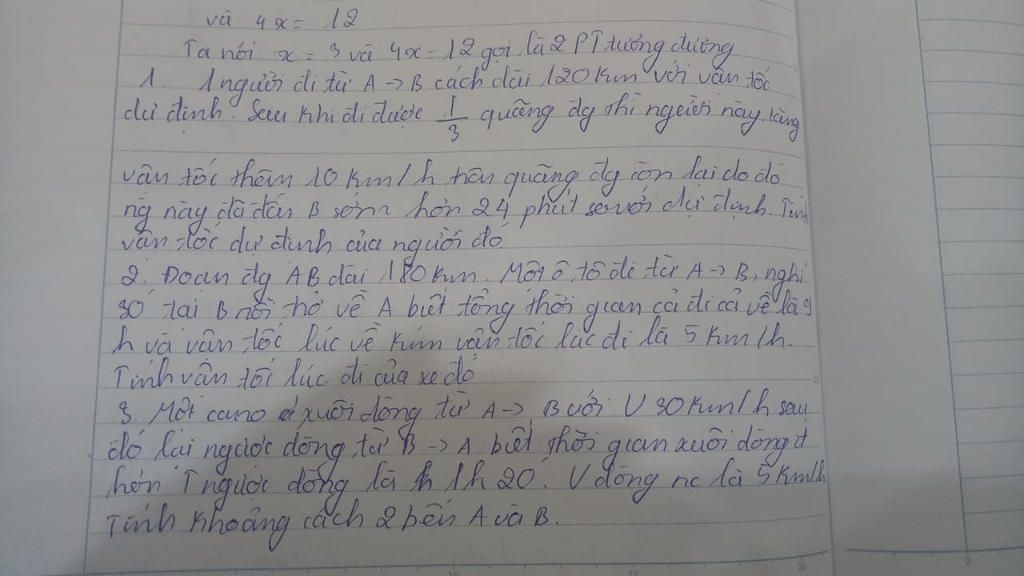 và 4x = 12
Ta nói x = 3 và 4x = 12 gọi là 2 PT tương đương
1. 1 người đi từ A → B cách dài 120 km với vận tốc
dự định. Sau khi đi được 1/3 quãng đg thì người này tăng
vận tốc thêm 10 km/h trên quãng đg còn lại do đó
ng này đã đến B sớm hơn 24 phút so với dự định. Tính
vận tốc dự định của người đó
2. Đoạn đg AB dài 180 km. Một ô tô đi từ A → B, nghỉ
30' tại B rồi trở về A biết tổng thời gian cả đi cả về là 9
h và vận tốc lúc về kém vận tốc lúc đi là 5 km/h.
Tính vận tốc lúc đi của xe đó
3. Một cano xuôi dòng từ A → B với V 30 km/h sau
đó lại ngược dòng từ B → A biết thời gian xuôi dòng ít
hơn T ngược dòng là 1h 20'. V dòng nc là 5 km/h
Tính khoảng cách 2 bến A và B.